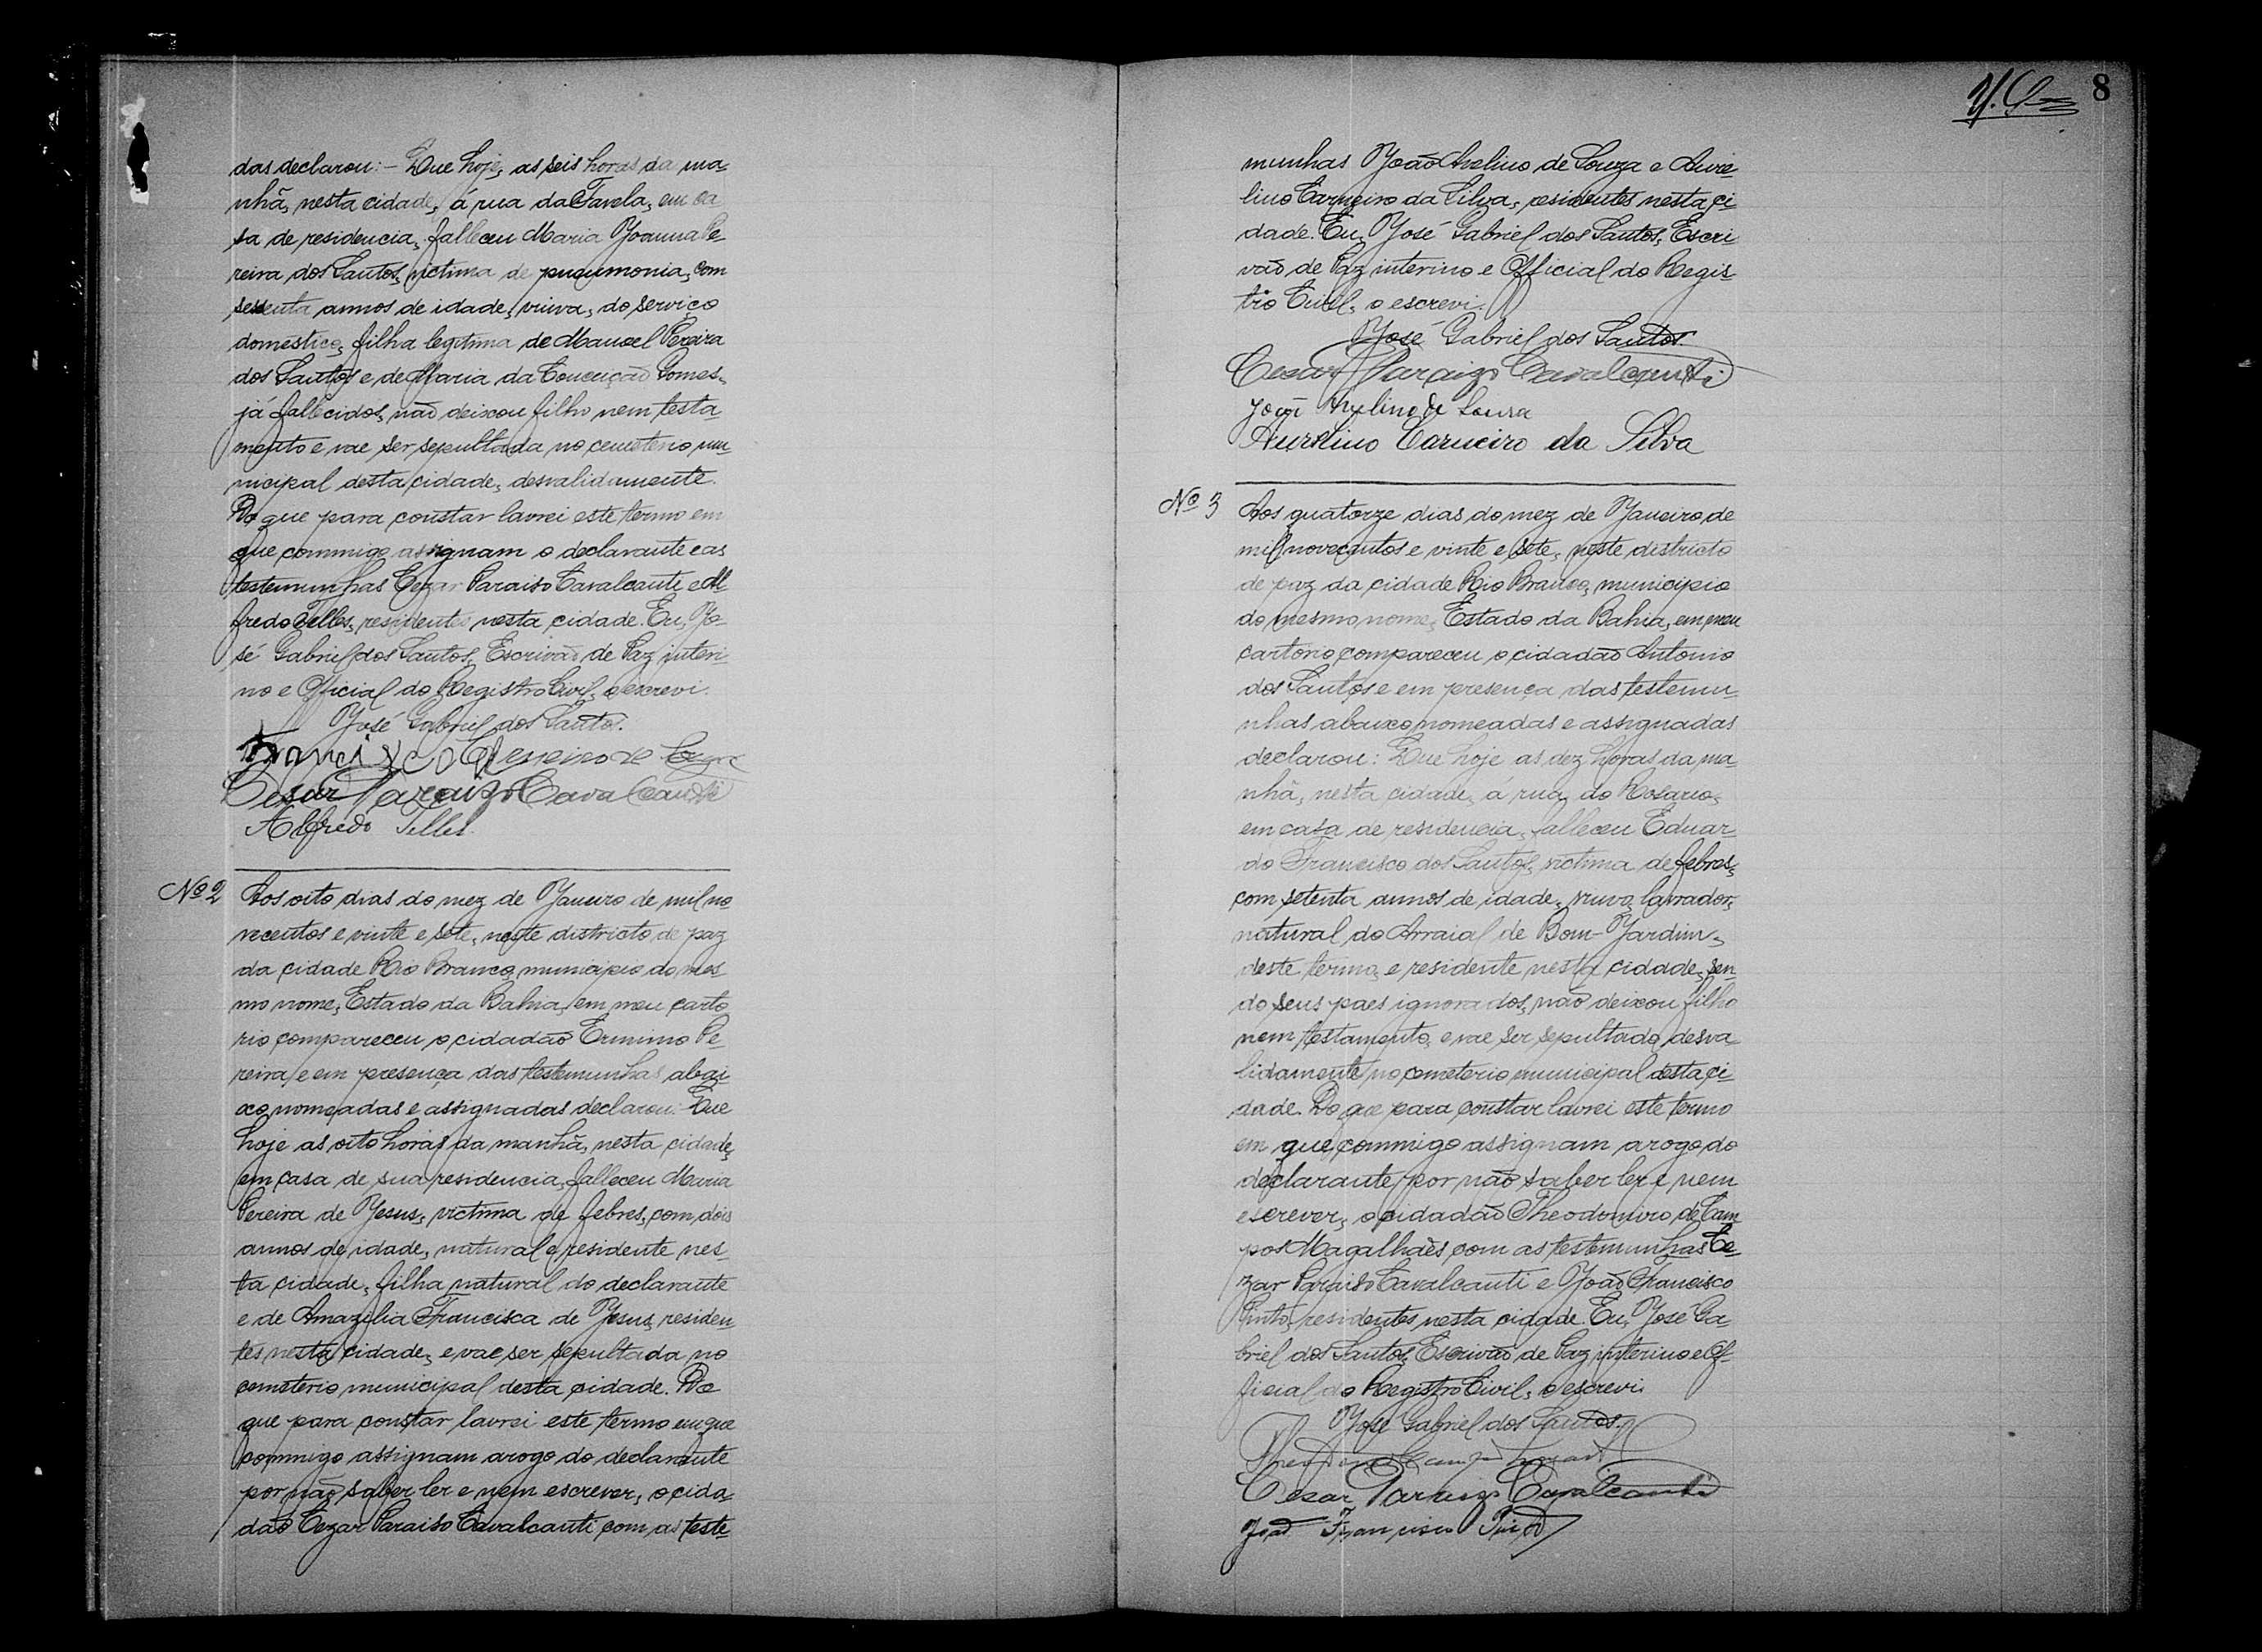 das declarou:- Que hoje, as seis horas da ma-
nhã, nesta cidade, á rua da Favela, em ca
sa de residencia, falleceu Maria Joanna Pe-
reira dos Santos, victima de pneumonia, com
sessenta annos de idade, viuva, do serviço
domestico, filha legitima de Manoel Pereira
dos Santos e de Maria da Conceição Gomes,
já fallecidos, não deixou filho nem testa
mento e vae ser sepultada no cemeterio mu-
nicipal desta cidade, desvalidamente.
Do que para constar lavrei este termo em
que commigo assignam o declarante e as
testemunhas Cezar Paraiso Cavalcanti e Al-
fredo Telles, residentes nesta cidade. Eu, Jo-
sé Gabriel dos Santos, Escrivão de Paz interi-
no e Official do Registro Civil, o escrevi.
José Gabriel dos Santos.
Francisco
Cesar Paraizo Cavalcanti
Alfredo Telles.
Nº 2 Aos oito dias do mez de Janeiro de mil no
vecentos e vinte e sete, neste districto de paz
da cidade Rio Branco, municipio do mes
mo nome, Estado da Bahia, em meu carto
rio compareceu o cidadão Erminio Pe-
reira e em presença das testemunhas abai-
xo nomeadas e assignadas declarou: Que
hoje as oito horas da manhã, nesta cidade,
em casa de sua residencia, falleceu Maria
Pereira de Jesus, victima de febres, com dois
annos de idade, natural e residente nes-
ta cidade, filha natural do declarante
e de Amazilia Francisca de Jesus, residen
tes nesta cidade, e vae ser sepultada no
cemeterio municipal desta cidade. Do
que para constar lavrei este termo em que
commigo assignam arogo do declarante
por não saber ler e nem escrever, o cida-
dão Cezar Paraiso Cavalcanti com as teste-
8
munhas João Avelino de Souza e Aure-
lino Carneiro da Silva, residentes nesta ci-
dade. Eu, José Gabriel dos Santos, Escri
vão de Paz interino e Official do Regis-
tro Civil, o escrevi.
José Gabriel dos Santos.
Cesar Paraizo Cavalcanti
João Avelino de Sousa
Aurelino Carneiro da Silva
Nº 3 Aos quatorze dias do mez de Janeiro de
mil novecentos e vinte e sete, neste districto
de paz da cidade Rio Branco, municipio
do mesmo nome, Estado da Bahia, em meu
cartorio compareceu o cidadão Antonio
dos Santos e em presença das testemu-
nhas abaixo nomeadas e assignadas
declarou: Que hoje as dez horas da ma-
nhã, nesta cidade, á rua do Rosario,
em casa de residencia, falleceu Eduar-
do Francisco dos Santos, victima de febres,
com setenta annos de idade, viuvo, lavrador,
natural do Arraial de Bom-Jardim,
deste termo, e residente nesta cidade, sen-
do seus paes ignorados, não deixou filho
nem testamento, e vae ser sepultado desva-
lidamente no cemeterio municipal desta ci-
dade. Do que para constar lavrei este termo
em que commigo assignam arogo do
declarante, por não saber ler e nem
escrever, o cidadão Theodomiro de Cam
pos Magalhães, com as testemunhas Ce-
zar Paraiso Cavalcanti e João Francisco
Pinto, residentes nesta cidade. Eu, José Ga-
briel dos Santos, Escrivão de Paz interino e Of-
ficial do Registro Civil, o escrevi.
José Gabriel dos Santos.
Cesar Paraizo Cavalcanti
João Francisco Pinto